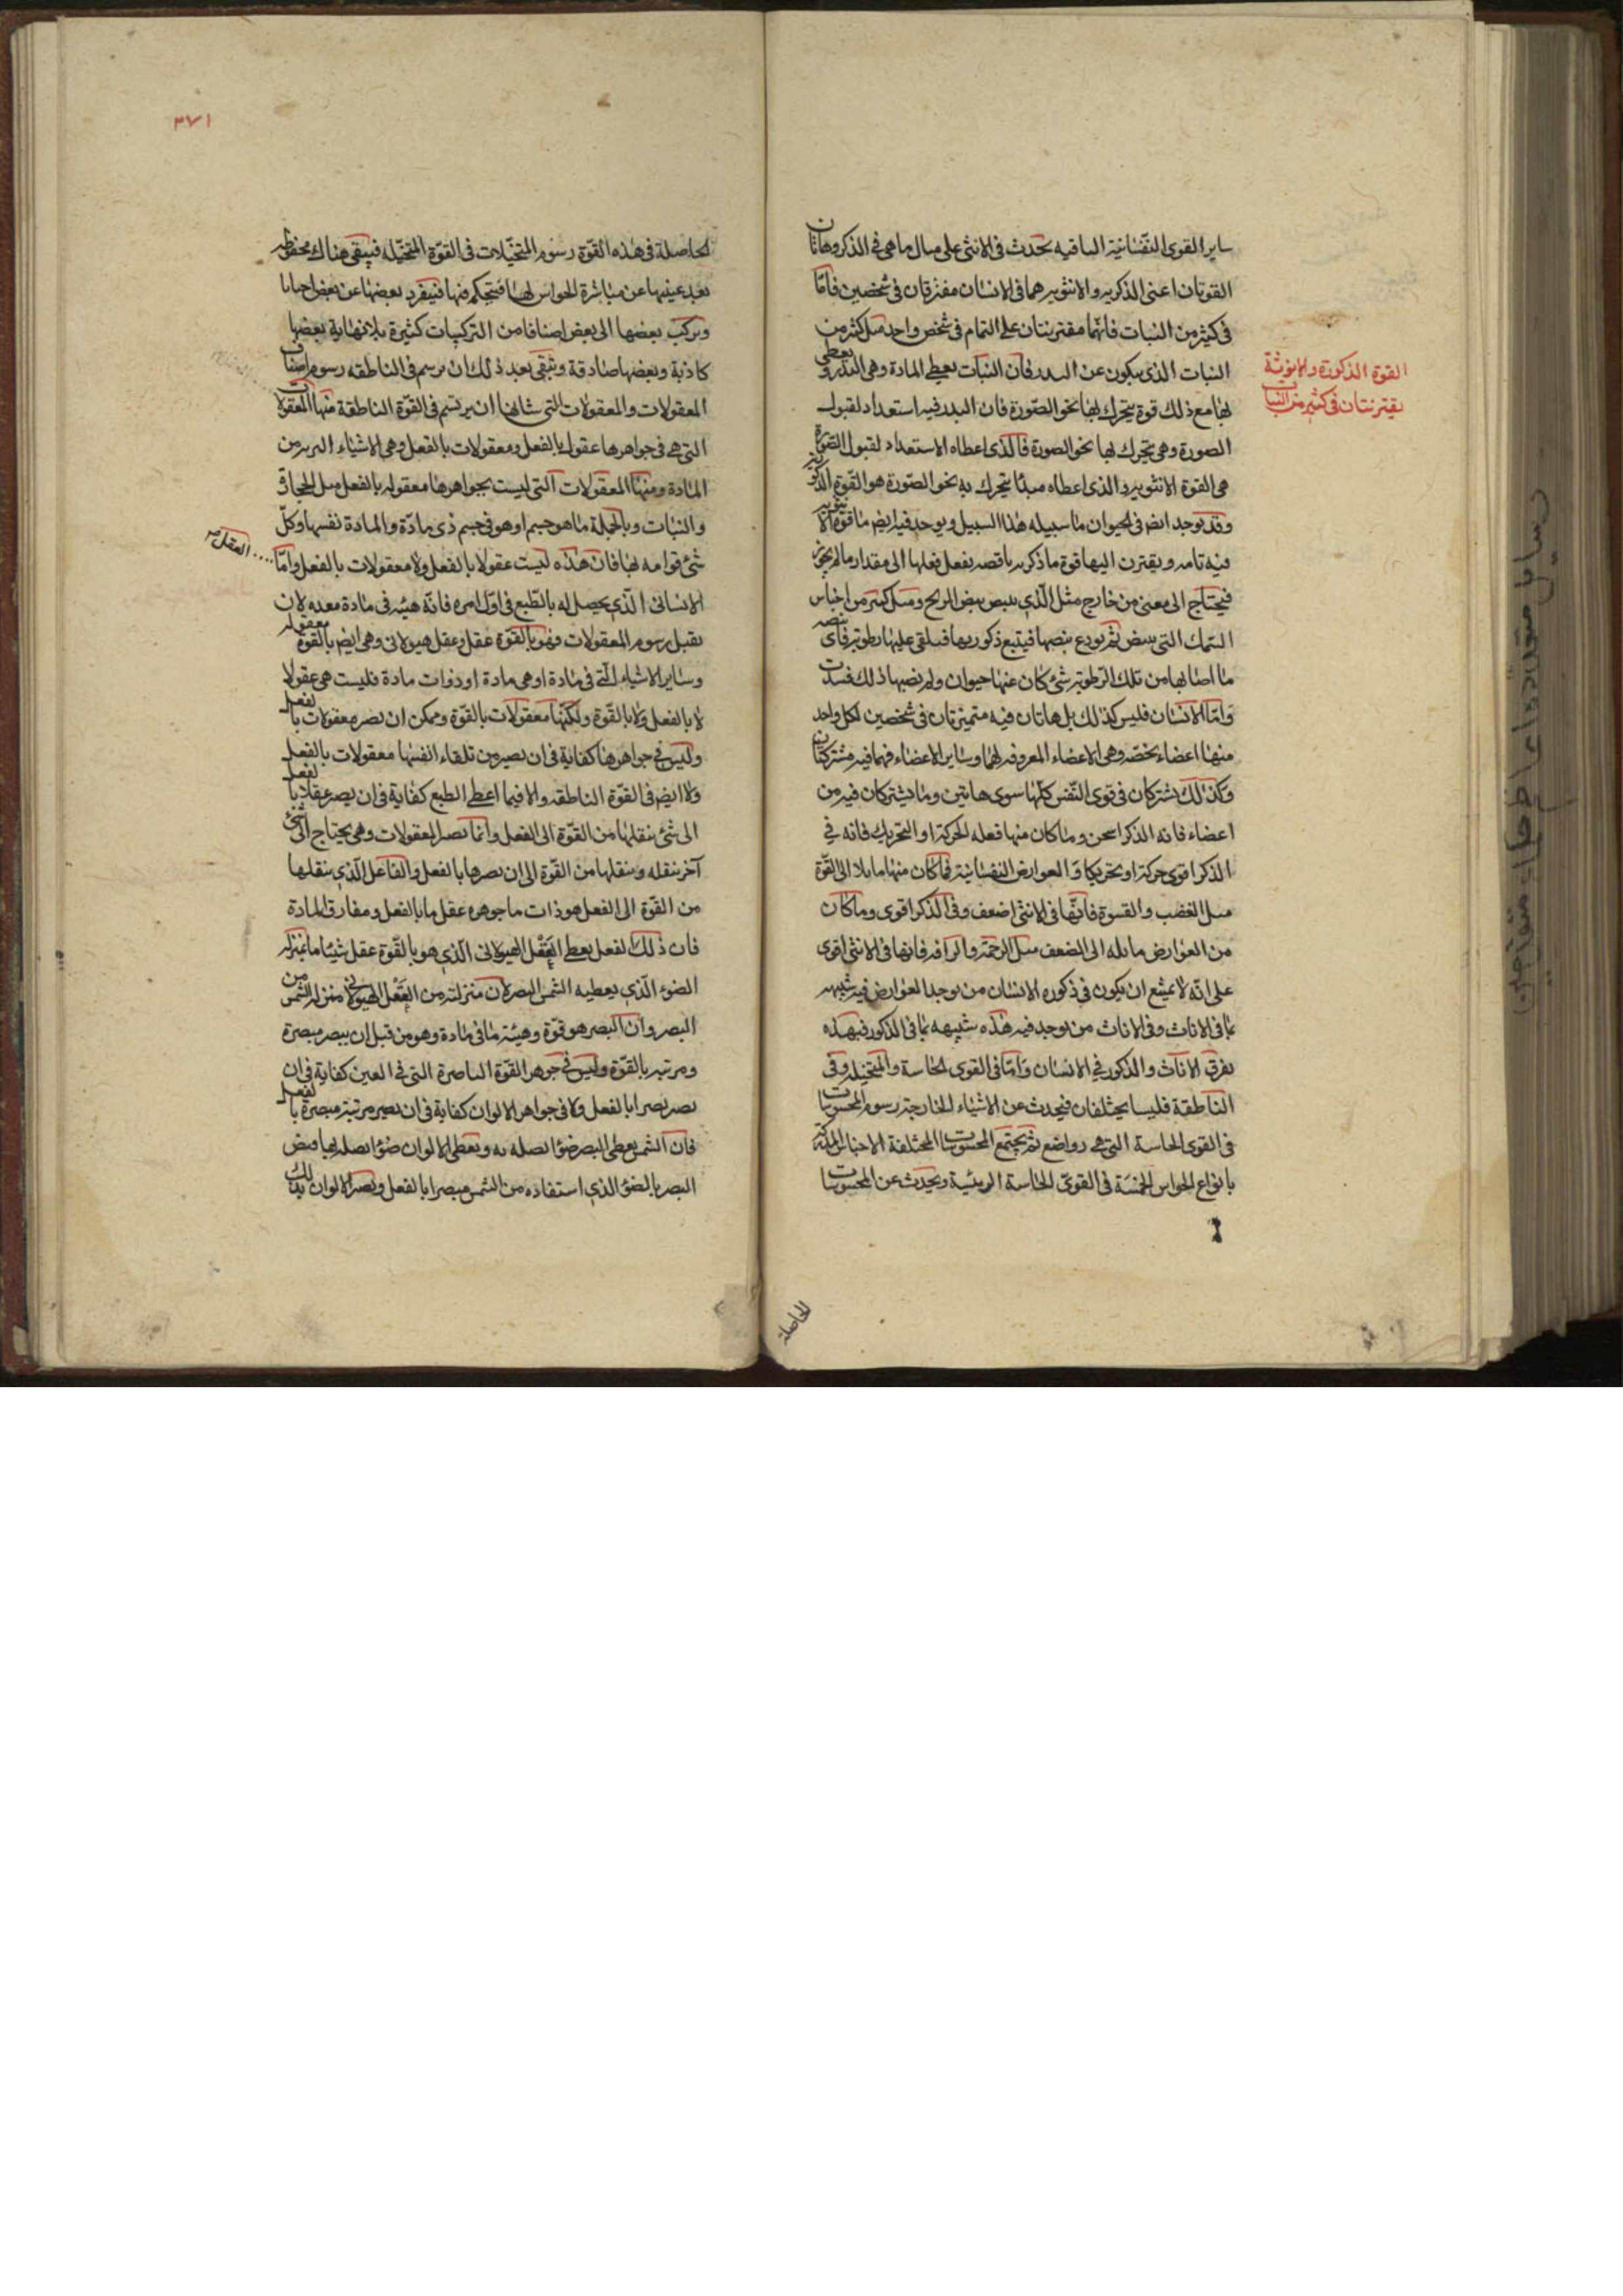 ساير القوى النفسانية الباقيه تحدث فى الانثى على مثال ما هى فى الذكر وهاتان
القوتان اعنى الذكريه والانثويه هما فى الانسان مفترقان فى شخصين فامّا
فى كثير من النبات فانهما مقترنتان على التمام فى شخص واحد مثل كثير من
النبات الذى يتكون عن البذر فان النبات يعطى المادة وهى البذر ويعطى
بها مع ذلك قوة يتحرك بها نحو الصّورة فان البذر فيه استعداد لقبول
الصورة وهى يتحرك بها نحو الصورة فالذى اعطاه الاستعداد لقبول الصورة
هى القوة الانثويه والذى اعطاه مبدئا يتحرك به نحو الصّورة هو القوّة الذكرية
وقد يوجد ايضا فى الحيوان ما سبيله هذا السبيل ويوجد فيه ايض ما قوة الانثويه
فيه تامه ويقترن اليها قوة ما ذكريه ناقصه يفعل فعلها الى مقدار ما ثم يجوز
فيحتاج الى معنى من خارج مثل الّذى يبيض بيض الريح ومثل كثير من اجناس
السّمك التى تبيض ثم يودع بيضها فيتبع ذكوريها فيلقى عليها رطوبة فاى بيضه
ما اصابها من تلك الرّطوبة شئ كان عنها حيوان ولم يصبها ذلك فسدت
وَامّا الانسان فليس كذلك بل هاتان فيه متميزتان فى شخصين لكل واحد
منهما اعضاء يخصّه وهى الاعضاء المعروفه لهما وساير الاعضاء فهما فيه مشتركتان
وكذلك يشتركان فى قوى النّفس كلّها سوى هاتين وما يشتركان فيه من
اعضاء فانه الذكر اسخن وما كان منها فعله الحركة او التحريك فانه فى
الذكر اقوى حركة او تحريكا والعوارض النفسانية فما كان منها مايلا الى القّوة
مثل الغضب والقسوة فانّها فى الانثى اضعف وفى الذكر اقوى وما كان
من العوارض مائله الى الضعف مثل الرحمة والرافه فانها فى الانثى اقوى
على انّه لا يمتنع ان يكون فى ذكوره الانسان من يوجد العوارض فيه شبيهه
بما فى الاناث وفى الاناث من يوجد فيه هذه شبيهه بما فى الذكور فبهذه
يفرق الاناث والذكور فى الانسان وَامّا فى القوى الحاسة والمتخيله وفى
الناطقة فليسا يختلفان فيحدث عن الاشياء الخارجة رسوم المحسوسات
فى القوى الحاسة التى هى رواضع ثم يجتمع المحسوسات المختلفة الاجناس المدركة
بانواع الحواس الخمسَة فى القوىّ الحاسة الرئيسية ويحدث عن المحسوسات
القوة الذكورة والانوثة
يقترنتان فى كثير من النبات
الحاصلة
رسايل متعدده از حكماء متفرقين
٣٧١
الحاصلة فى هذه القوّة رسوم المتخيّلات فى القوّة المتخيّله فيبقى هناك محفوظه
بعد غيبتها عن مباشرة الحواس لها فيتحكم فيها فيفرد بعضها عن بعض احيانا
ويركب بعضها الى بعض اصنافا من التركيبات كثيرة بلا نهاية بعضها
كاذبة وبعضها صادقة ويبقى بعد ذلك ان يرسم فى الناطقه رسوم اصناف
المعقولات والمعقولات التى شانها ان يرتسم فى القوّة الناطقة منها المعقولات
التى هى فى جواهرها عقول بالفعل ومعقولات بالفعل وهى الاشياء البريه من
المادة ومنها المعقولات التى ليست بجواهرها معقوله بالفعل مثل الحجارة
والنبات وبالجملة ما هو جسم او هو فى جسم ذى مادّة والمادة نفسها وكلّ
شئ قوامه بها فان هذه ليست عقولا بالفعل ولا معقولات بالفعل وامّا
.... العقل
الانسانى الّذى يحصل له بالطّبع فى اوّل امره فانّه هيئه فى مادة معده لان
يقبل رسوم المعقولات فهو بالقوّة عقل وعقل هيولانى وهى ايض بالقوّة معقوله
وساير الاشياء الّتى فى مادة او هى مادة او ذوات مادة فليست هى عقولا
لا بالفعل ولا بالقوّة ولكنّها معقولات بالقوّة ويمكن ان تصير معقولات بالفعل
وليس فى جواهرها كفاية فى ان يصير من تلقاء انفسها معقولات بالفعل
ولا ايض فى القوّة الناطقه ولا فيما اعطى الطبع كفاية فى ان يصير عقلا بالفعل
الى شئ ينقلها من القوّة الى الفعل وانما تصير المعقولات وهى يحتاج الى شئ
آخر ينقله وينقلها من القوّة الى ان يصيرها بالفعل والفاعل الّذى ينقلها
من القوّة الى الفعل هو ذات ما جوهره عقل ما بالفعل ومفارق للمادة
فان ذلك الفعل يعطى العَقْل الهيولانى الّذى هو بالقوّة عقل شيئا ما بمنزله
الضوء الّذى يعطيه الشمس البصر لان منزلته من العَقْل الهيولانى منزله الشمس من
البصر وان البصر هو قوّة وهيئة ما فى مادة وهو من قبل ان يبصر مبصرة
ومرئيه بالقوّة وليس فى جوهر القوّة الباصرة التى فى العين كفاية فى ان
يصير بصرا بالفعل ولا فى جواهر الالوان كفاية فى ان يصير مرئية مبصرة بالفعل
فان الشمس يعطى البصر ضوءا يصله به ويعطى الالوان ضوءا يصله بها فيصير
البصر بالضوء الذى استفاده من الشمس مبصرا بالفعل ويصير الالوان بذلك